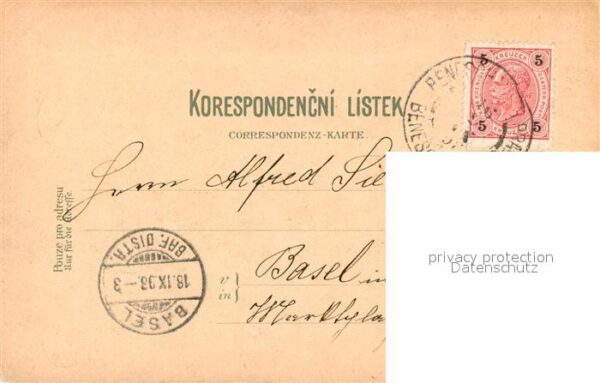 KORESPONDENČNÍ LÍSTEK
CORRESPONDENZ-KARTE.
5 KREUZER 5
5 5
BENE
BENE
Pouze pro adresu
Nur für die Adresse.
Herrn Alfred Sie
v
in
Basel in
Marktpla
BRF. DISTR.
18.IX.96.-3
BASEL
privacy protection
Datenschutz